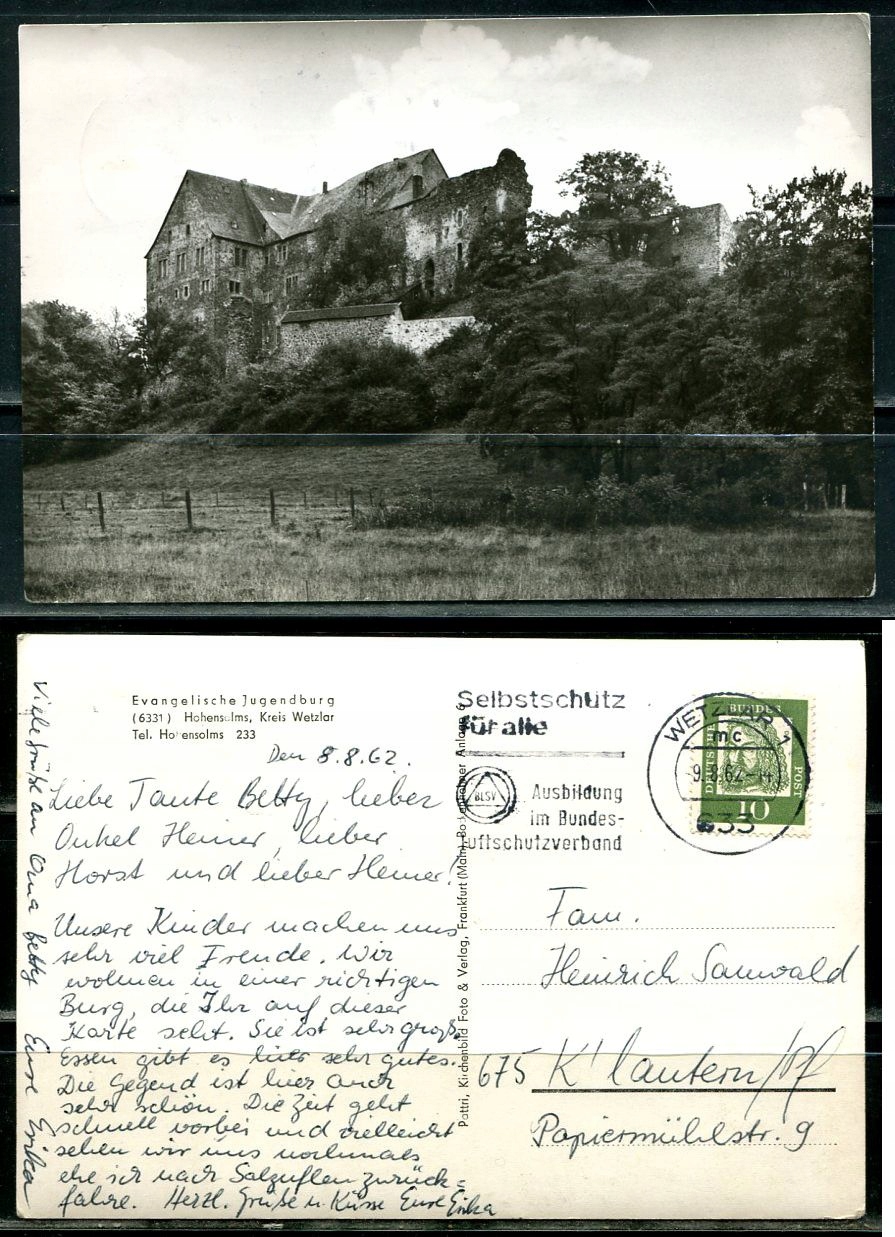 Evangelische Jugendburg
(6331) Hohensolms, Kreis Wetzlar
Tel. Hohensolms 233
Den 8.8.62.
Liebe Tante Betty, lieber
Onkel Heiner, lieber
Horst und lieber Heiner!
Unsere Kinder machen uns
sehr viel Freude. Wir
wohnen in einer richtigen
Burg, die Ihr auf dieser
Karte seht. Sie ist sehr groß.
Essen gibt es hier sehr gutes.
Die Gegend ist hier auch
sehr schön. Die Zeit geht
schnell vorbei und vielleicht
sehen wir uns nochmals
ehe ich nach Salzuflen zurück=
fahre. Herzl. Grüße u. Küsse Eure Erika
Viele Grüße an Oma Betty Eure Erika
Pattri, Kirchenbild Foto & Verlag, Frankfurt (Main), Bockenheimer Anlage
Selbstschutz
für alle
BLSV
Ausbildung
im Bundes-
luftschutzverband
WETZLAR 1
mc
-9.8.62-14
633
DEUTSCHE
BUNDES
POST
10
Fam.
Heinrich Sauwald
675 K'lautern/Pf
Papiermühlstr. 9